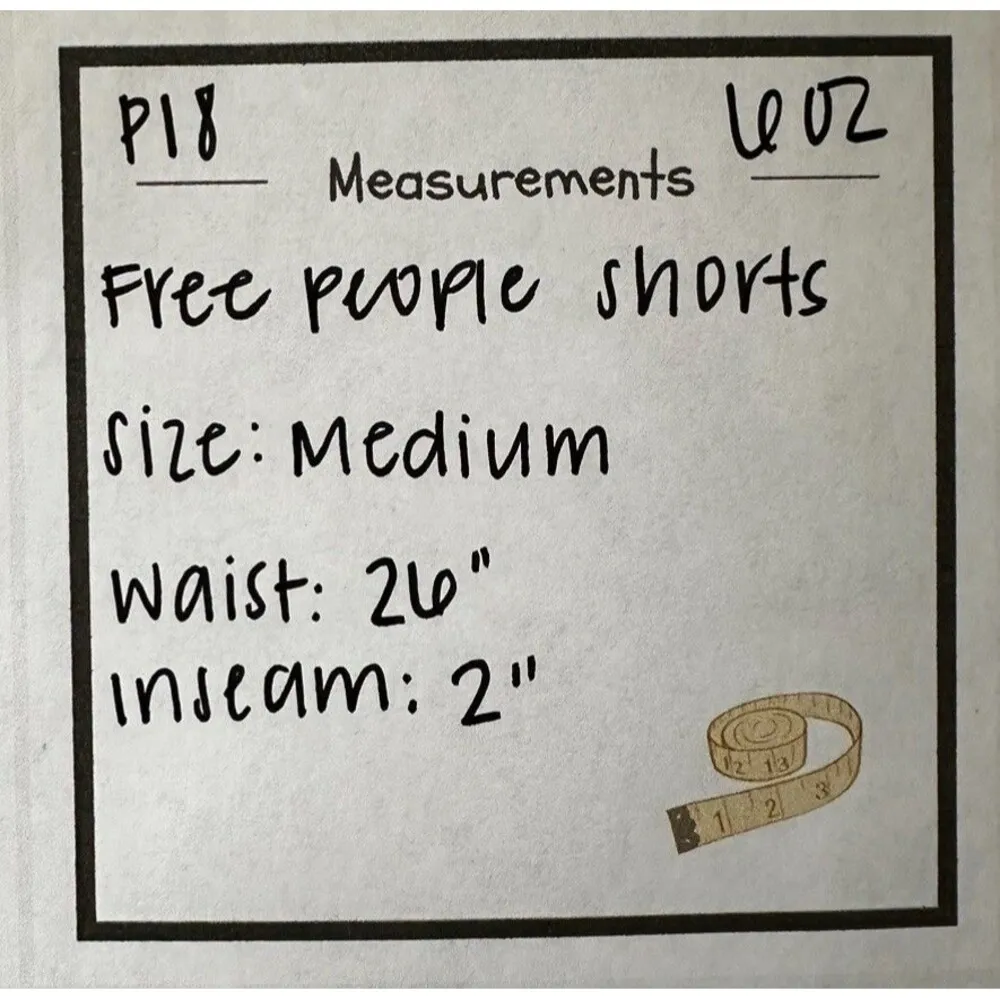 P18
6 oz
Measurements
Free people shorts
Size: Medium
Waist: 26"
Inseam: 2"
12 13
1 2 3